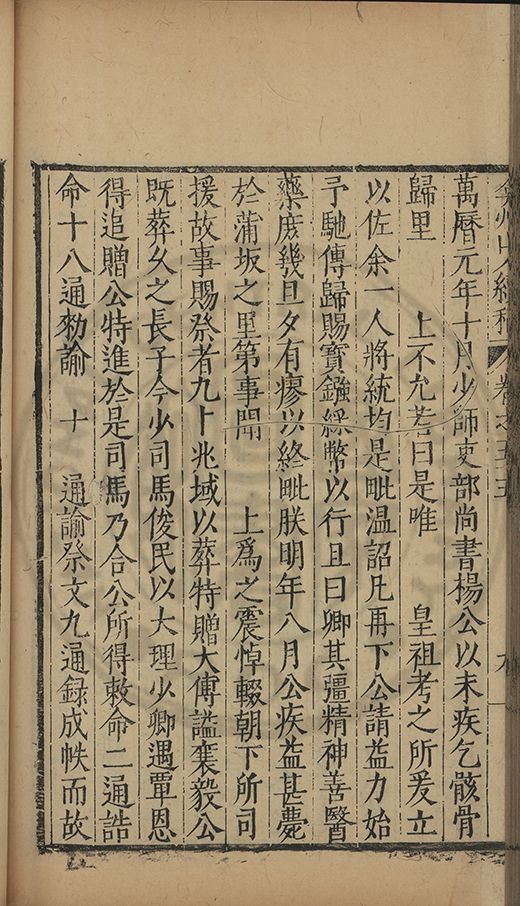 弇州山人續稿 卷之五五
萬曆元年十月少師吏部尚書楊公以末疾乞骸骨
歸里　上不允若曰是唯　皇祖考之所爰立
以佐余一人將統均是毗温詔凡再下公請益力始
予馳傳歸賜寳鏹綵幣以行且曰卿其彊精神善醫
藥庶幾旦夕有瘳以終毗朕明年八月公疾益甚薨
於蒲坂之里第事聞　上爲之震悼輟朝下所司
援故事賜祭者九卜兆域以葬特贈大傅謚襄毅公
既葬久之長子今少司馬俊民以大理少卿遇覃恩
得追贈公特進於是司馬乃合公所得敕命二通誥
命十八通勑諭　十　通諭祭文九通録成帙而故